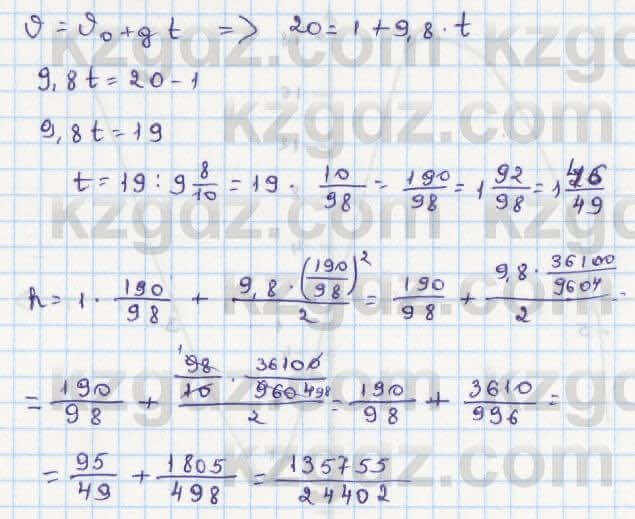 ϑ = ϑ₀ + g t => 20 = 1 + 9,8 · t
9,8t = 20 - 1
9,8t = 19
t = 19 : 9 8/10 = 19 · 10/98 = 190/98 = 1 92/98 = 1 46/49
h = 1 · 190/98 + (9,8 · (190/98)²)/2 = 190/98 + (9,8 · 36100/9604)/2 =
= 190/98 + (98/10 · 36100/9604)/2 = 190/98 + 3610/996 =
= 95/49 + 1805/498 = 135755/24402
kzgdz.com